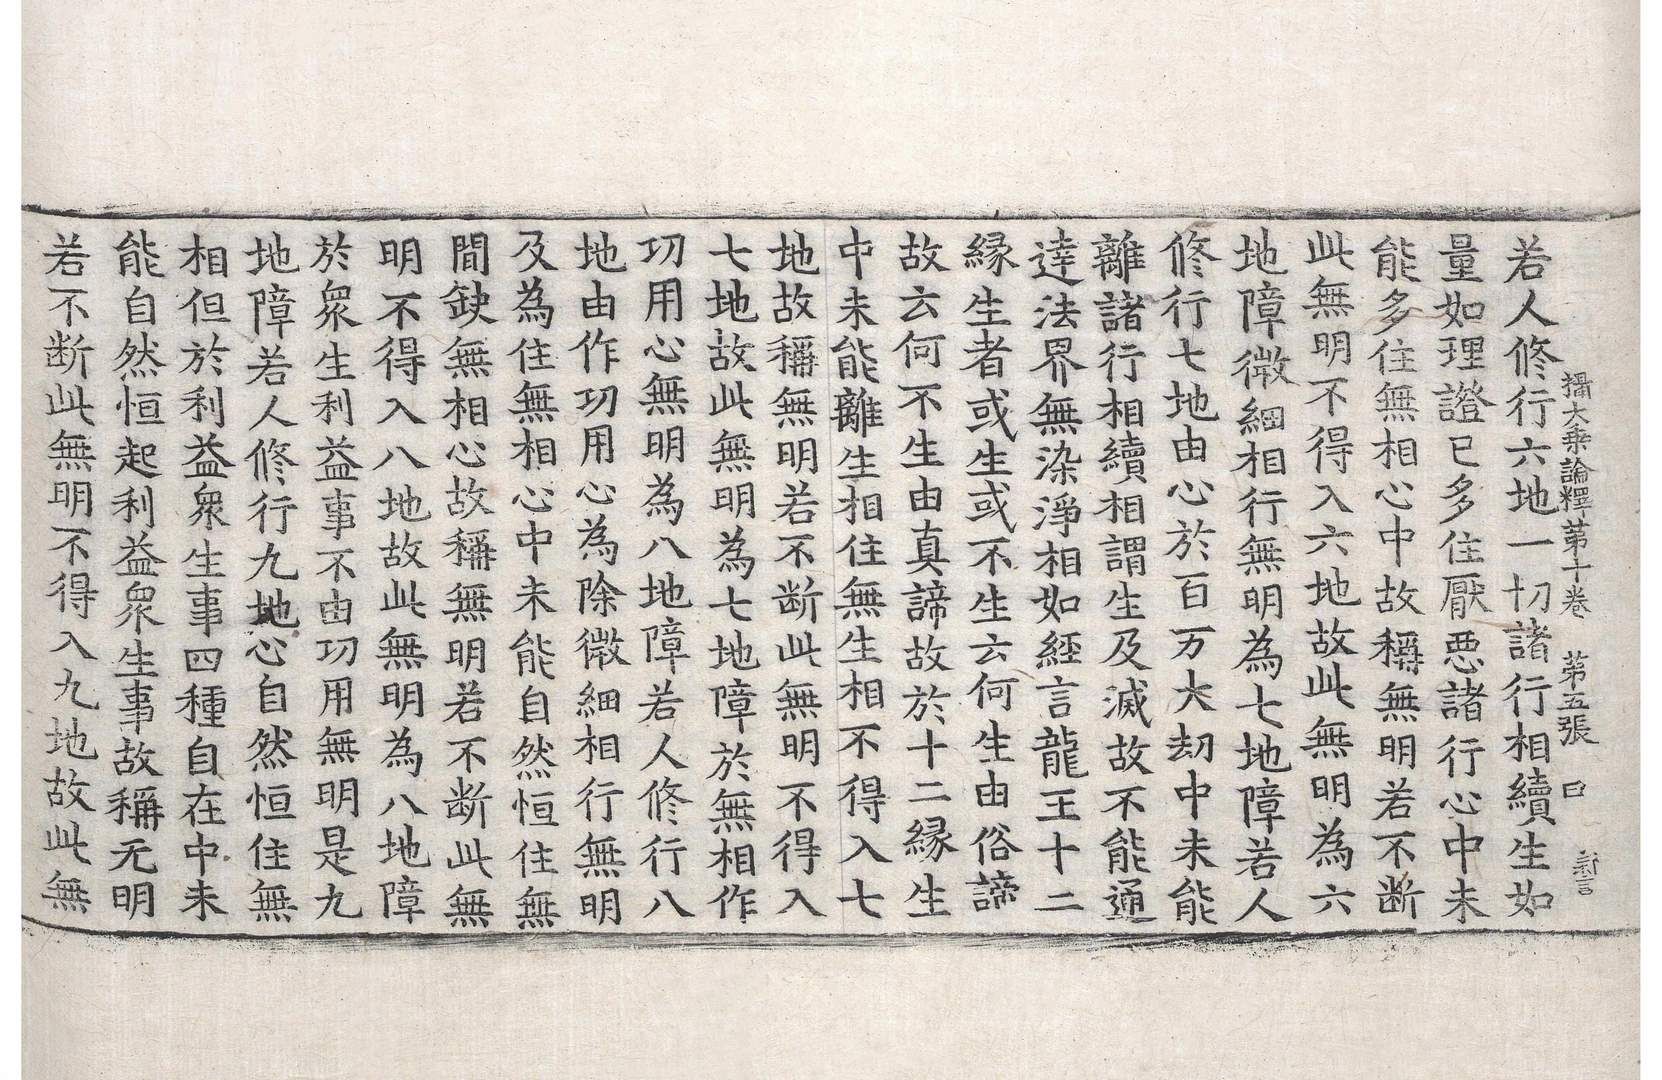 攝大乗論釋苐十卷 第五張 曰
若人修行六地一切諸行相續生如
量如理證已多住厭惡諸行心中未
能多住無相心中故稱無明若不断
此無明不得入六地故此無明為六
地障微細相行無明為七地障若人
修行七地由心於百万大劫中未能
離諸行相續相謂生及滅故不能通
達法界無染淨相如經言龍王十二
緣生者或生或不生云何生由俗諦
故云何不生由真諦故於十二緣生
中未能離生相住無生相不得入七
地故稱無明若不断此無明不得入
七地故此無明為七地障於無相作
功用心無明為八地障若人修行八
地由作功用心為除微細相行無明
及為住無相心中未能自然恒住無
間缺無相心故稱無明若不断此無
明不得入八地故此無明為八地障
於衆生利益事不由功用無明是九
地障若人修行九地心自然恒住無
相但於利益衆生事四種自在中未
能自然恒起利益衆生事故稱无明
若不断此無明不得入九地故此無